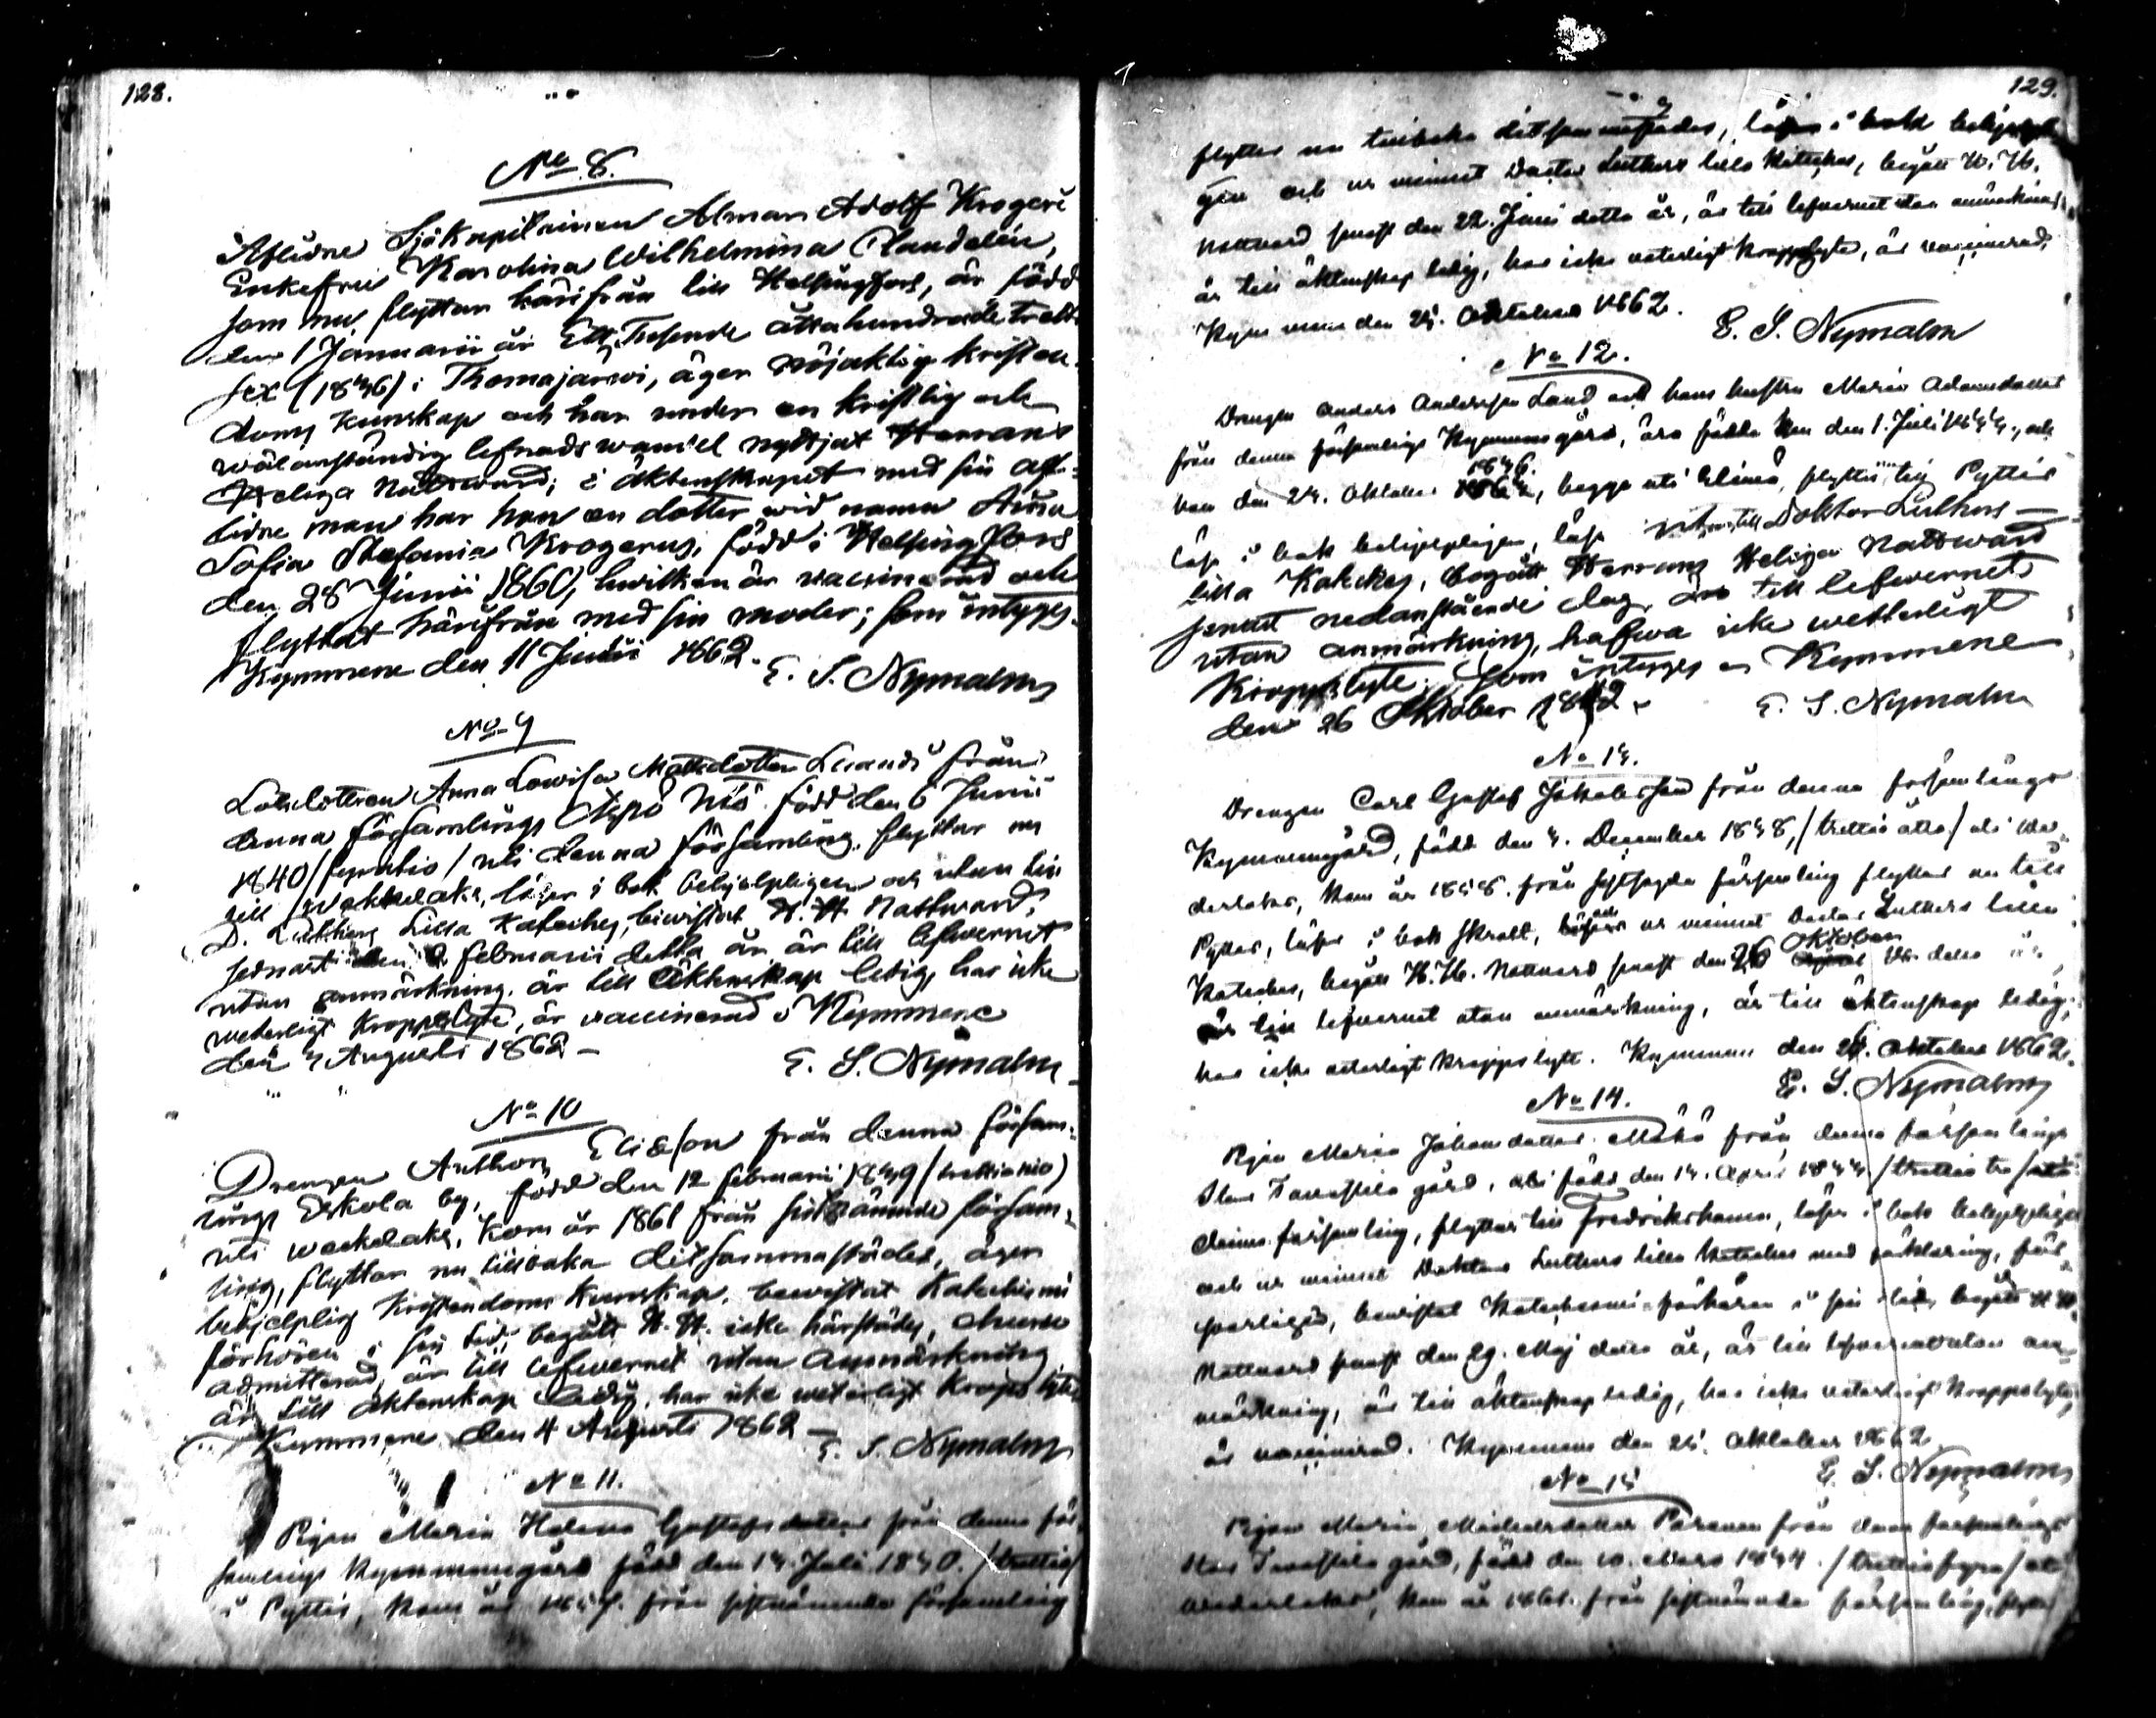 128.
No 8.
Aflidne Sjökapitainen Alman Adolf Krogeri
Enkefru Karolina Wilhelmina Clandelin,
som nu flyttar härifrån till Helsingfors, är född
den 1 Januarii år Ett Tusende åttahundrade tretti
sex (1836) i Thomajärwi, äger nöjaktig kristen-
doms kunskap och har under en kristlig och
wälanständig lefnadswandel nyttjat Herrans
Heliga Nattward; i äktenskapet med sin af-
lidne man har hon en dotter wid namn Aina
Sofia Stefania Krogerus, född i Helsingfors
den 28 Junii 1860, hwilken är vaccinerad och
flyttat härifrån med sin moder; som intyges.
Kymmene den 11 Junii 1862.
E. S. Nymalm
No 9
Lotsdottren Anna Lowisa Mattsdotter från
denna församlings född den 6 Junii
1840 /fyratio/ uti denna församling, flyttar nu
till Weckelaks, läser i bok behjelpligen och utan till
D. Luthers Lilla Kateches, bewistat H. H. Nattward
sednast den 2 Februarii detta år, är till lefwernet
utan anmärkning, är till äktenskap ledig, har icke
weterligt kroppslyte, är vaccinerad. Kymmene
den 4 Augusti 1862 –
E. S. Nymalm
No 10
Drengen Anthon Eliasson från denna försam-
lings Eskola by, född den 12 Februarii 1839 /trettionio)
uti Weckelaks, kom år 1861 från sistnämnde försam-
ling, flyttar nu tillbaka ditsammastädes, äger
behjelplig kristendoms kunskap, bewistat Katechismi
förhören i sin tid, begått H. H. icke härstädes, ehuru
admitterad, är till lefwernet utan anmärkning
är till äktenskap ledig, har icke weterligt kroppslyte
Kymmene den 4 Augusti 1862 –
E. S. Nymalm
No 11.
Pigan Maria Helena Gustafsdotter från denna för-
samlings Kymmenegård född den 14. Juli 1830. /trettio/
i Pyttis, kom år från sistnämnda församling
129.
flyttar nu tillbaka ditsammastädes, läser i bok behjelpli
gen och ur minnet Doctor Luthers lilla Kateches, begått H. H.
Nattvard senast den 22. Juni detta år, är till lefvernet utan anmärkning,
är till äktenskap ledig, har icke veterligt kroppslyte, är vaccinerad.
Kymmene den 25. Oktober 1862.
E. S. Nymalm
No 12.
Drengen Anders Andersson Lund och hans hustru Maria Adamsdotter
från denna församlings Kymmenegård, äro födde han den 1. Juli och
hon den 24. Oktober 1836. begge uti Elimä, flytta till Pyttis
läsa i bok behjelpligen, läsa utantill Doktor Luthers
lilla Kateches, begått Herrans Heliga Nattward
senast nedanstående dag, äro till lefwernet
utan anmärkning, hafwa icke wetterligt
kroppslyte. Som intyges. Kymmene
den 26 Oktober 1862.
E. S. Nymalm
No 13.
Drengen Carl Gustaf Jakobsson från denna församlings
Kymmenegård, född den 4. December 1838, /trettio åtta/ uti We-
derlaks, kom år 1858. från sistsagda församling flyttar nu till
Pyttis, läser i bok skralt, och ur minnet Doctor Luthers lilla
Kateches, begått H. H. Nattvard senast den 26 Oktober detta år,
är till lefvernet utan anmärkning, är till äktenskap ledig,
har icke veterligt kroppslyte. Kymmene den 26. Oktober 1862.
E. S. Nymalm
No 14.
Pigan Maria Johansdotter från denna församlings
Stor Tavastila gård, född den 14. April /trettio
denna församling, flyttar till Fredrikshamn, läser i bok behjelpligen
och ur minnet Doktor Luthers lilla Kateches med förklaring, för-
svarligen, bevistat Katechismi-förhören i sin tid, begått H. H.
Nattvard senast den 29. Maj detta år, är till lefvernet utan an-
märkning, är till äktenskap ledig, har icke veterligt kroppslyte,
är vaccinerad. Kymmene den 25. Oktober 1862
E. S. Nymalm
No 15
Pigan Maria från denna församlings
Stor Tavastila gård, född den 10. Mars 1834. /trettiofyra/ uti
Wederlaks, kom år 1861. från sistnämnda församling, flyttar